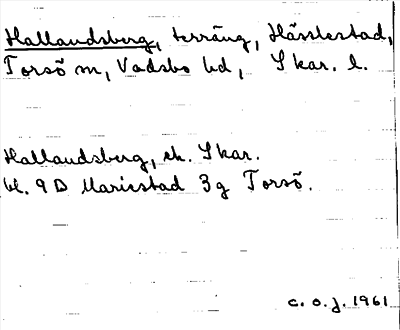 Hallandsberg, terräng, Hässlestad,
Torsö sn, Vadsbo hd, Skar. l.
Hallandsberg, ek. Skar.
bl. 9 D Mariestad 3g Torsö.
C. O. J. 1961